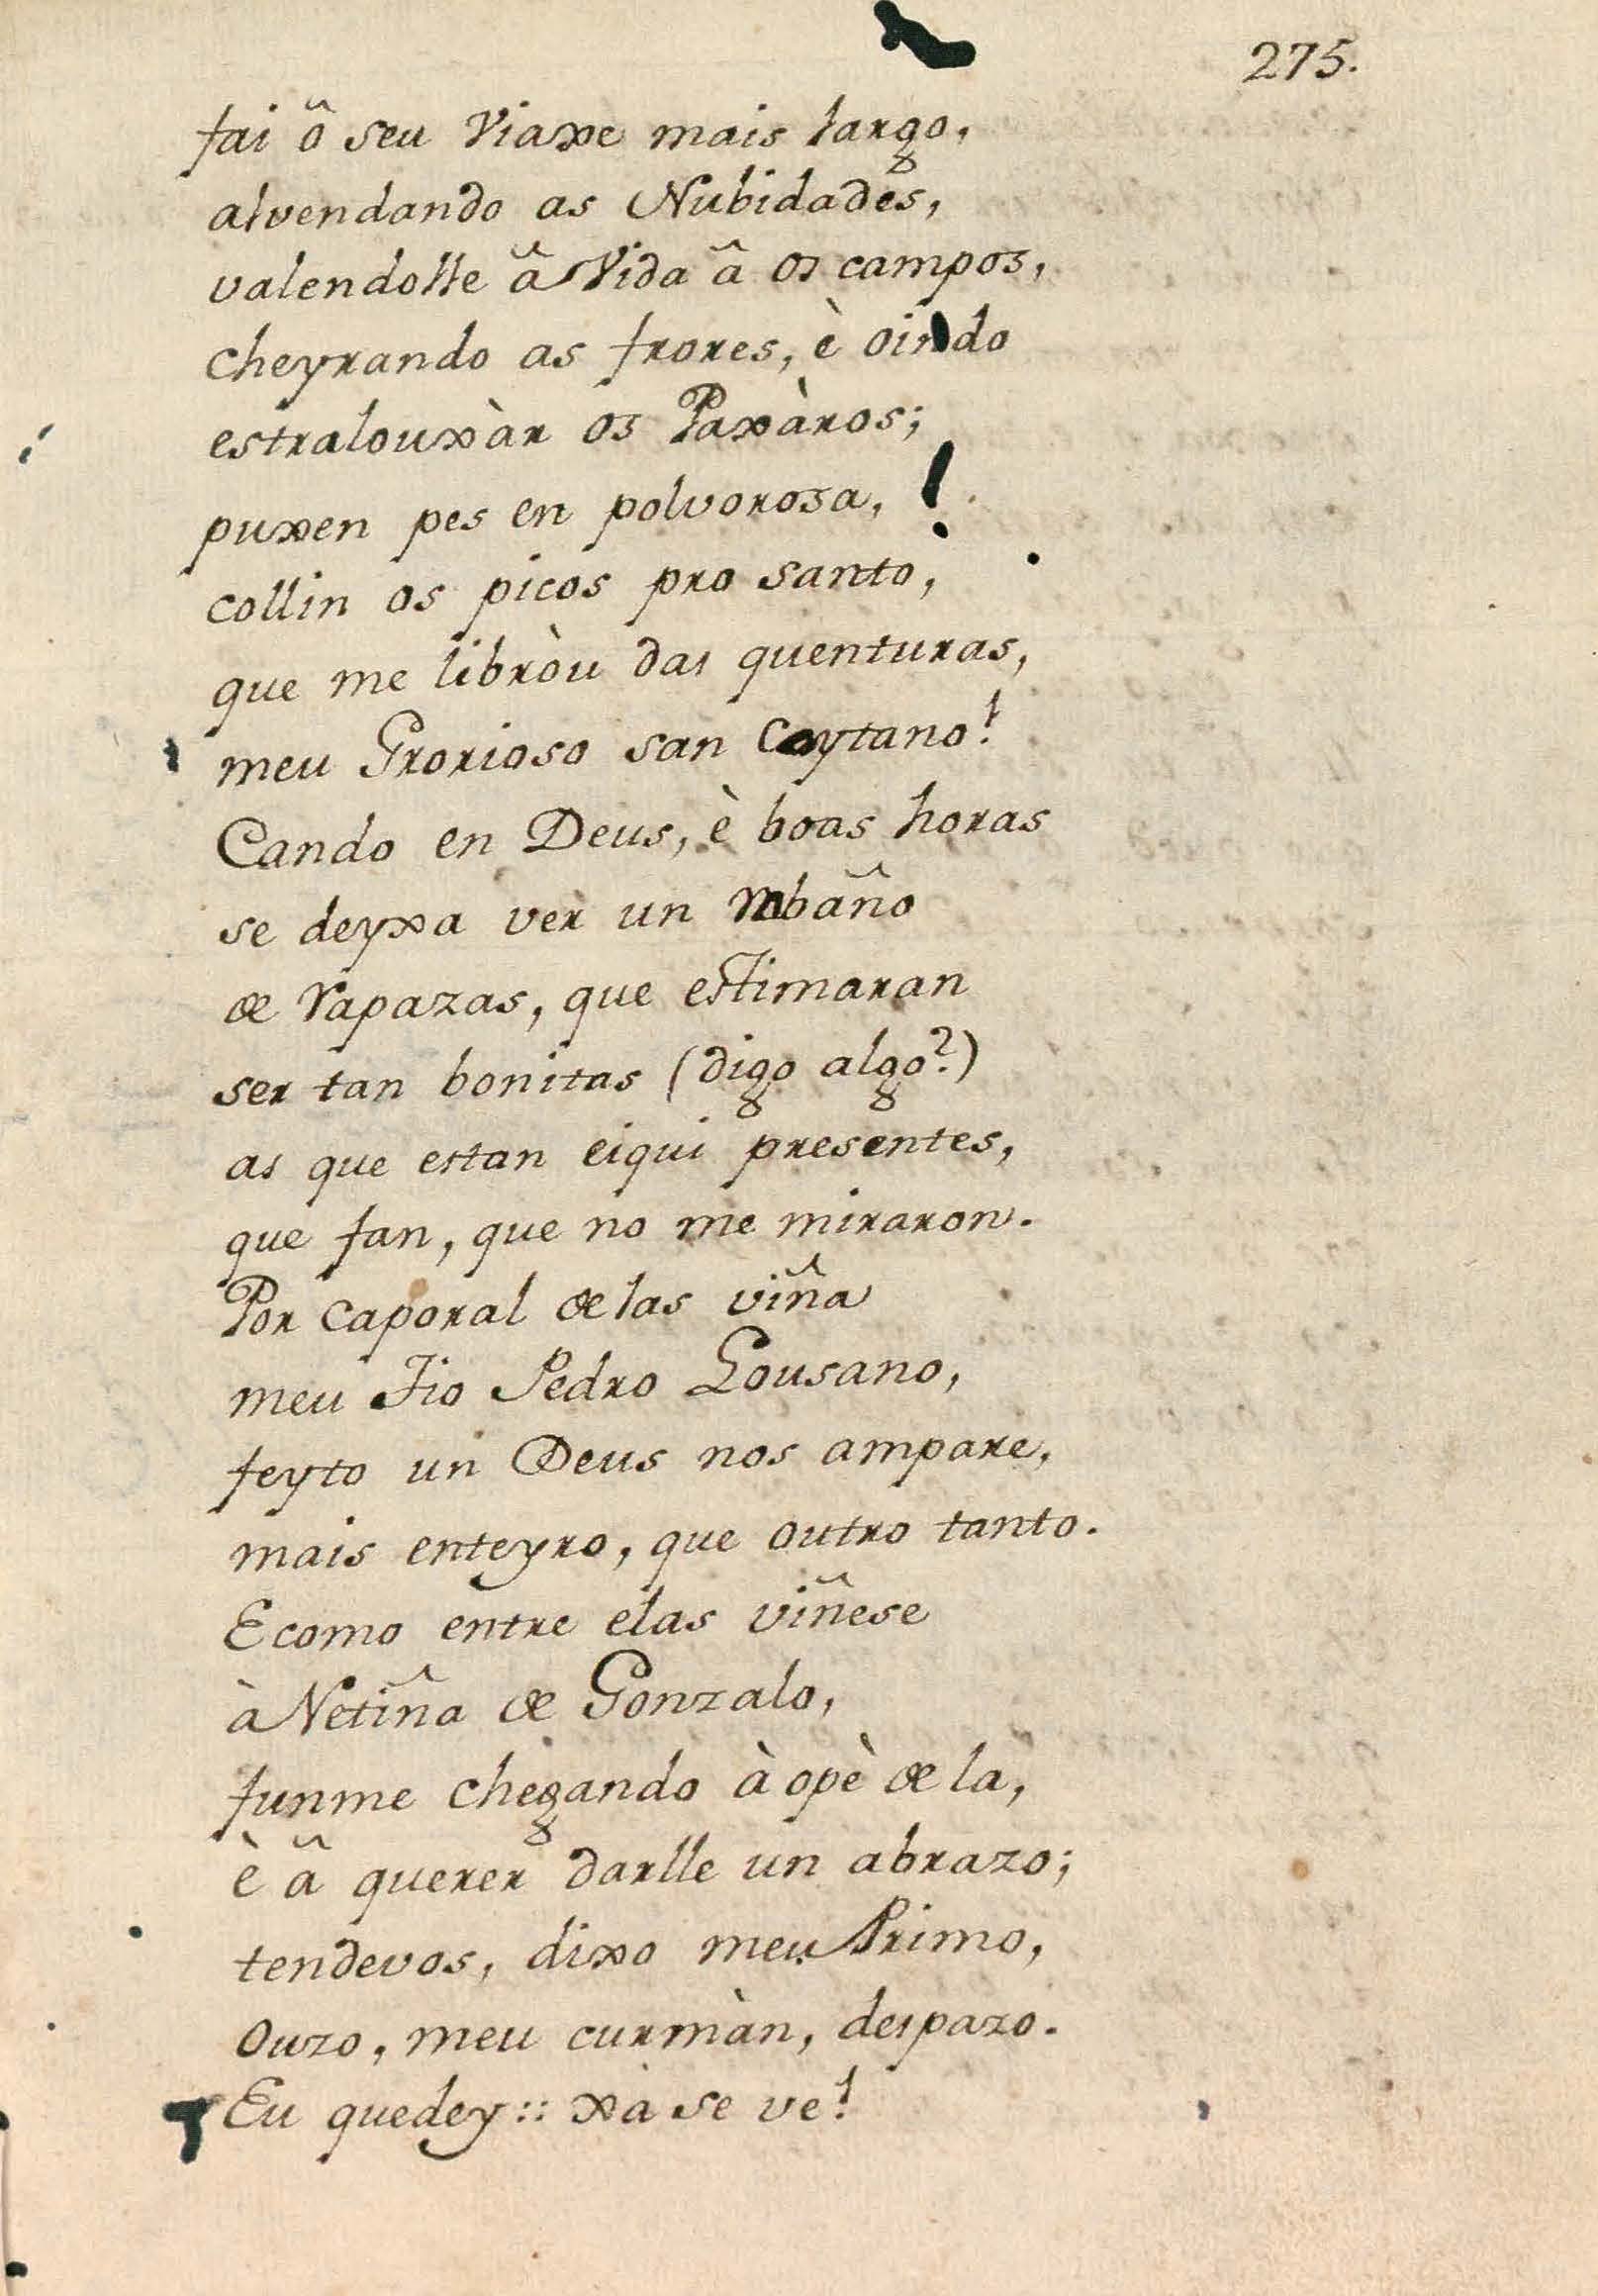 275.
fai ô seu viaxe mais largo,
alvendando as Nubidades,
valendolle â Vida â os campos,
cheyrando as frores, è oindo
estralouxàr os Paxàros;
puxen pes en polvorosa,
collin os picos pro santo,
que me libròu das quenturas,
meu Grorioso san Caytano!
Cando en Deus, è boas horas
se deyxa ver un rabaño
de rapazas, que estimaran
ser tan bonitas (digo algo?)
as que estan eiqui presentes,
que fan, que no me miraron.
Por caporal delas viña
meu Tio Pedro Lousano,
feyto un Deus nos ampare,
mais enteyro, que outro tanto.
E como entre elas viñese
à Netiña de Gonzalo,
funme chegando à opè dela,
è â querer darlle un abrazo;
tendevos, dixo meu Primo,
Ouzo, meu curmàn, despazo.
Eu quedey:: xà se ve!